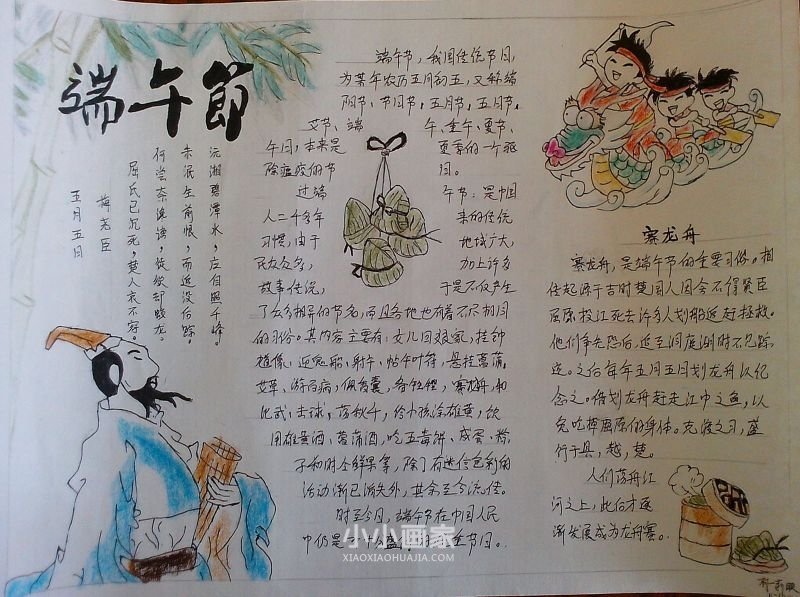 端午節
五月五日
梅尧臣
屈氏已沉死,楚人哀不容。
何尝奈谗谤,徒欲却蛟龙。
未泯生前恨,而追没后踪。
沅湘碧潭水,应自照千峰。
端午节,我国传统节日,
为某年农历五月初五,又称端
阳节、节日节,五月节,五月节,
艾节、端午、重午、夏节、
午日,本来是夏季的一个驱
除瘟疫的节日。
过端午节,是中国
人二千多年来的传统
习惯,由于地域广大,
民众众多,加上许多
故事传说,于是不仅产生
了众多相异的节名,而且各地也有着不尽相同
的习俗。其内容主要有:女儿回娘家,挂钟
馗像、迎鬼船、射午、帖午叶符,悬挂菖蒲,
艾草、游百病,佩香囊,备牲醴,赛龙舟,和
比武、击球,荡秋千,给小孩涂雄黄,饮
用雄黄酒、菖蒲酒,吃五毒饼、咸蛋、粽
子和时令鲜果等,除了有迷信色彩的
活动渐已消失外,其余至今流传。
时至今日,端午节在中国人民
中仍是一个盛节日。
赛龙舟
赛龙舟,是端午节的主要习俗。相
传起源于古时楚国人因舍不得贤臣
屈原投江死去许多人划船追赶拯救。
他们争先恐后,追至洞庭湖时不见踪
迹。之后每年五月五日划龙舟以纪
念之。借划龙舟赶走江中之鱼,以
免吃掉屈原的身体。竞渡之习,盛
行于吴,越,楚。
人们荡舟江
河之上,此后才逐
渐发展成为龙舟赛。
小小画家
XIAOXIAOHUAJIA.COM